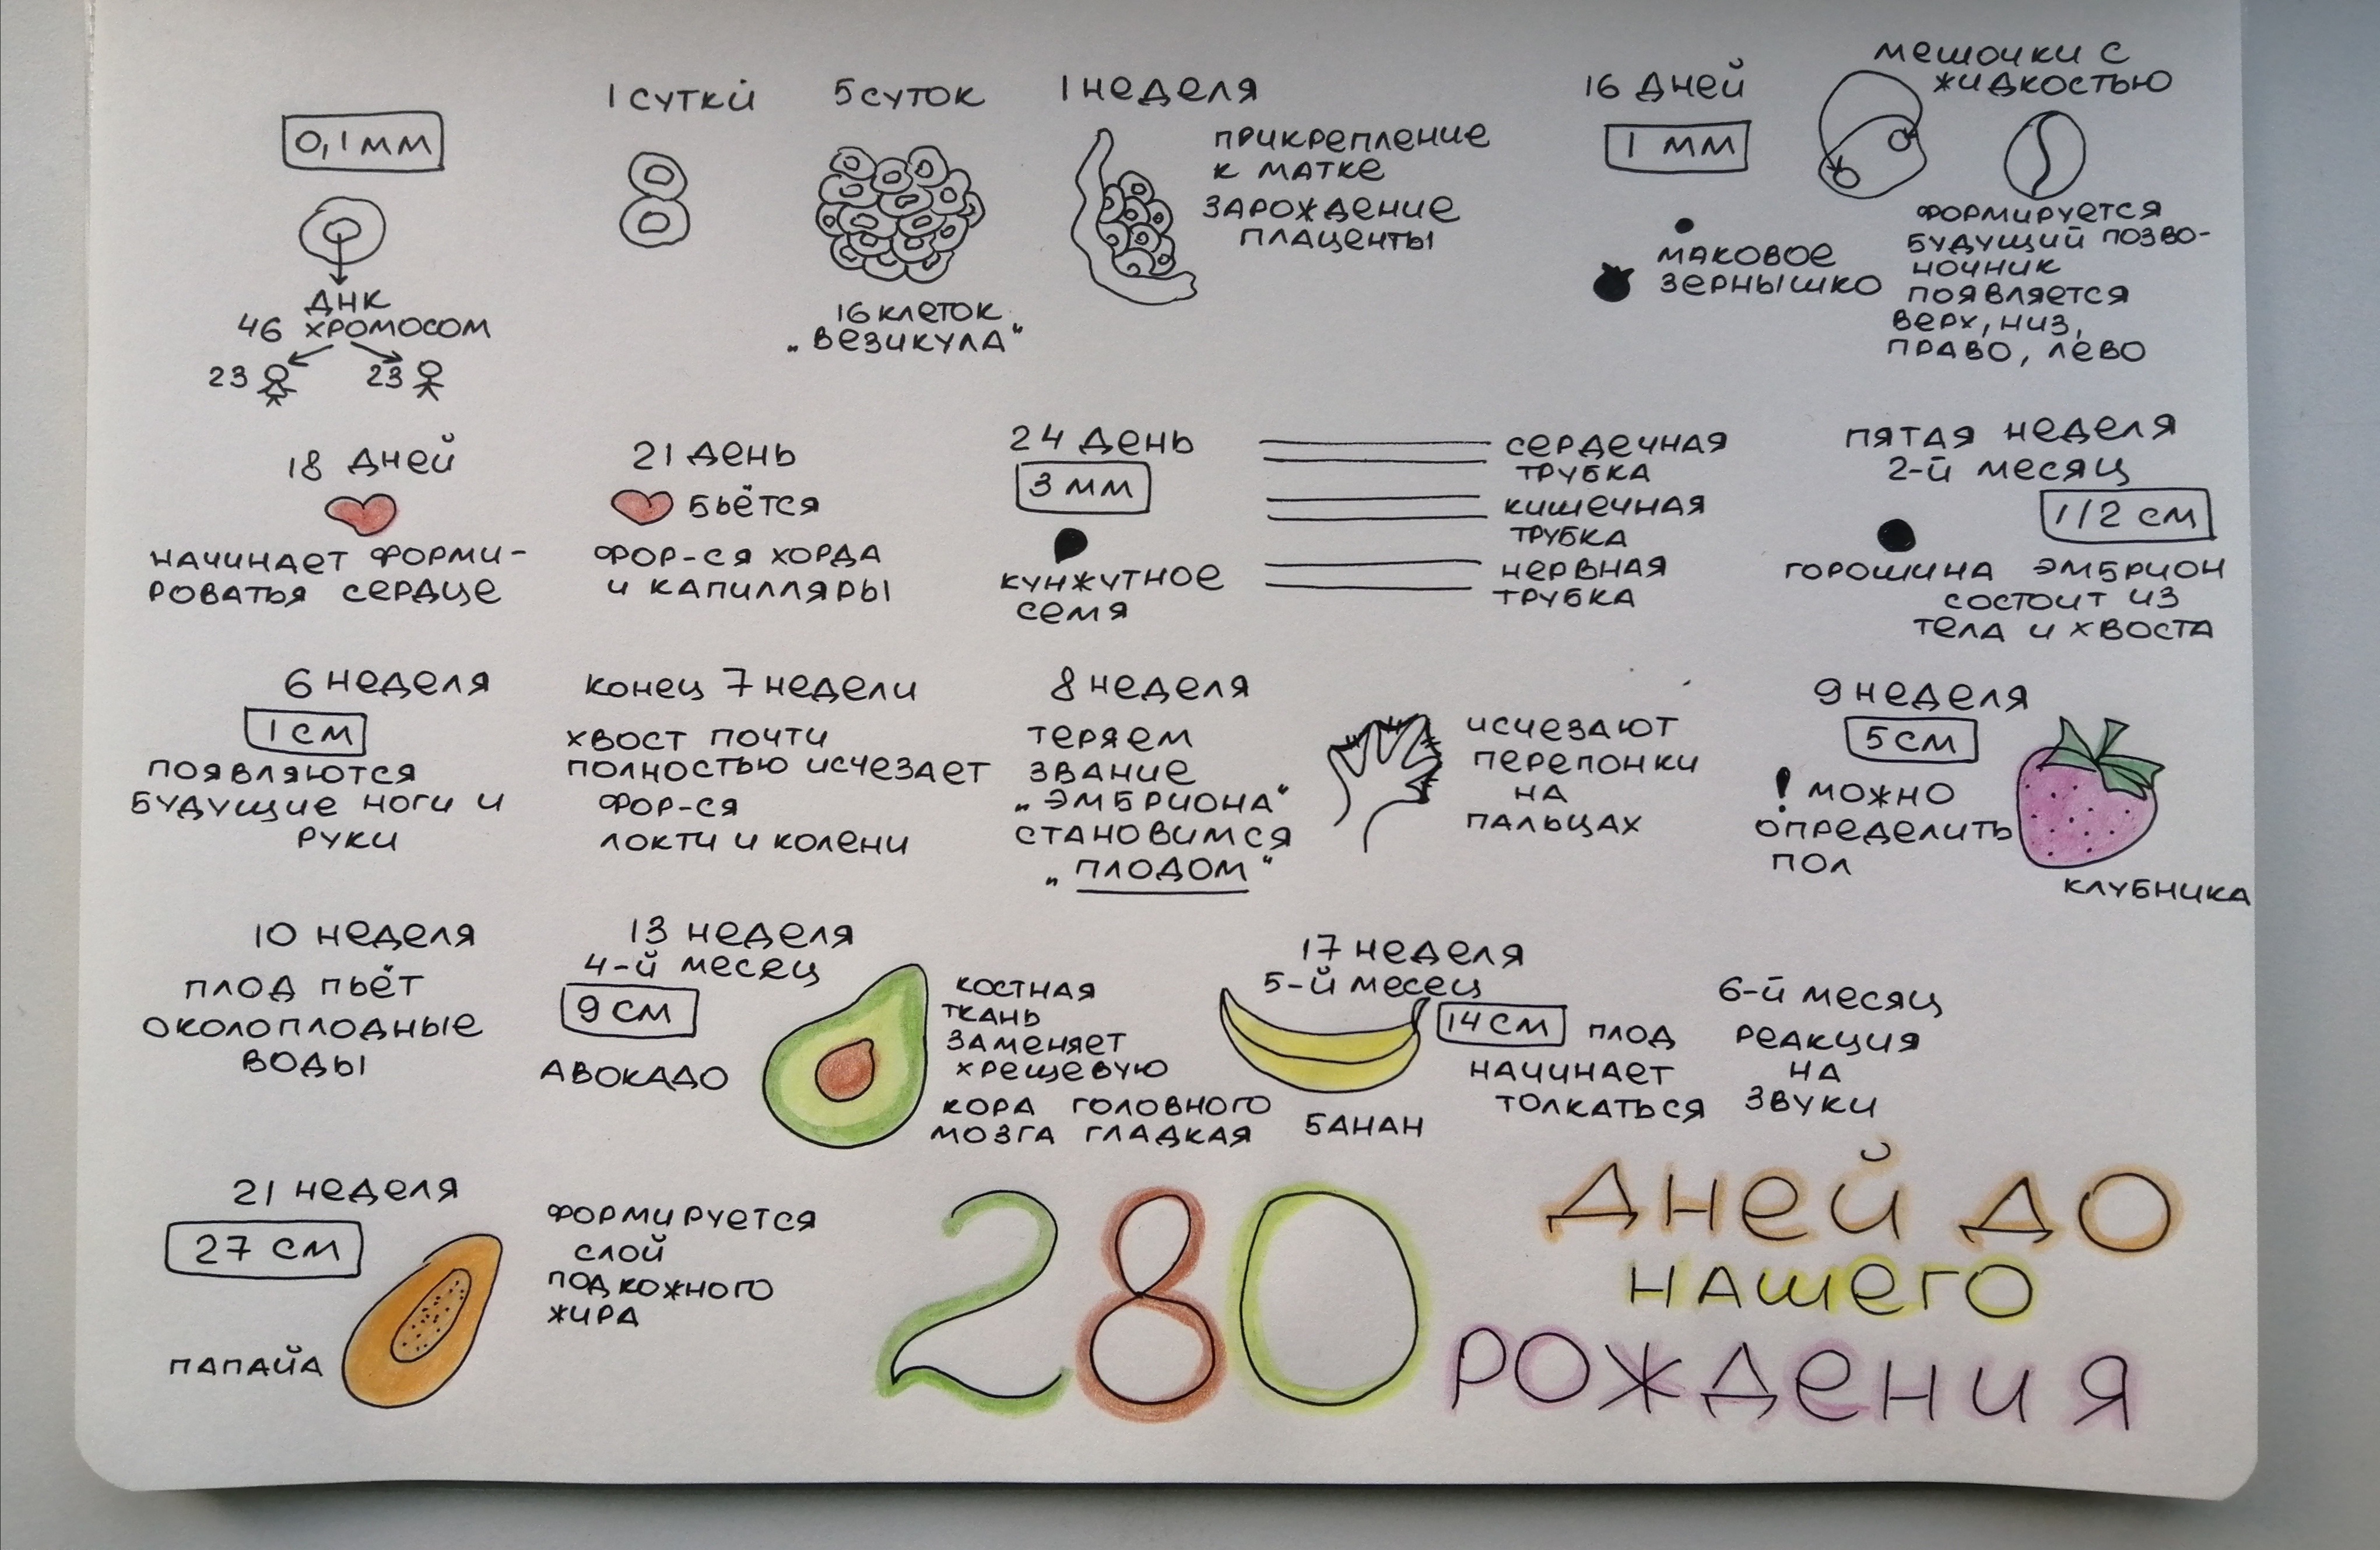 0,1 мм
ДНК
46 хромосом
23
23
1 сутки
5 суток
16 клеток
„везикула“
1 неделя
прикрепление
к матке
зарождение
плаценты
16 дней
1 мм
маковое
зернышко
мешочки с
жидкостью
формируется
будущий позво-
ночник
появляется
верх, низ,
право, лево
18 дней
начинает форми-
роваться сердце
21 день
бьётся
фор-ся хорда
и капилляры
24 день
3 мм
кунжутное
семя
сердечная
трубка
кишечная
трубка
нервная
трубка
пятая неделя
2-й месяц
1/2 см
горошина эмбрион
состоит из
тела и хвоста
6 неделя
1 см
появляются
будущие ноги и
руки
конец 7 недели
хвост почти
полностью исчезает
фор-ся
локти и колени
8 неделя
теряем
звание
„эмбриона“
становимся
„плодом“
исчезают
перепонки
на
пальцах
9 неделя
5 см
! можно
определить
пол
клубника
10 неделя
плод пьёт
околоплодные
воды
13 неделя
4-й месец
9 см
авокадо
костная
ткань
заменяет
хрещевую
кора головного
мозга гладкая
17 неделя
5-й месец
14 см плод
начинает
толкаться
банан
6-й месяц
реакция
на
звуки
21 неделя
27 см
папайа
формируется
слой
подкожного
жира
280
дней до
нашего
рождения